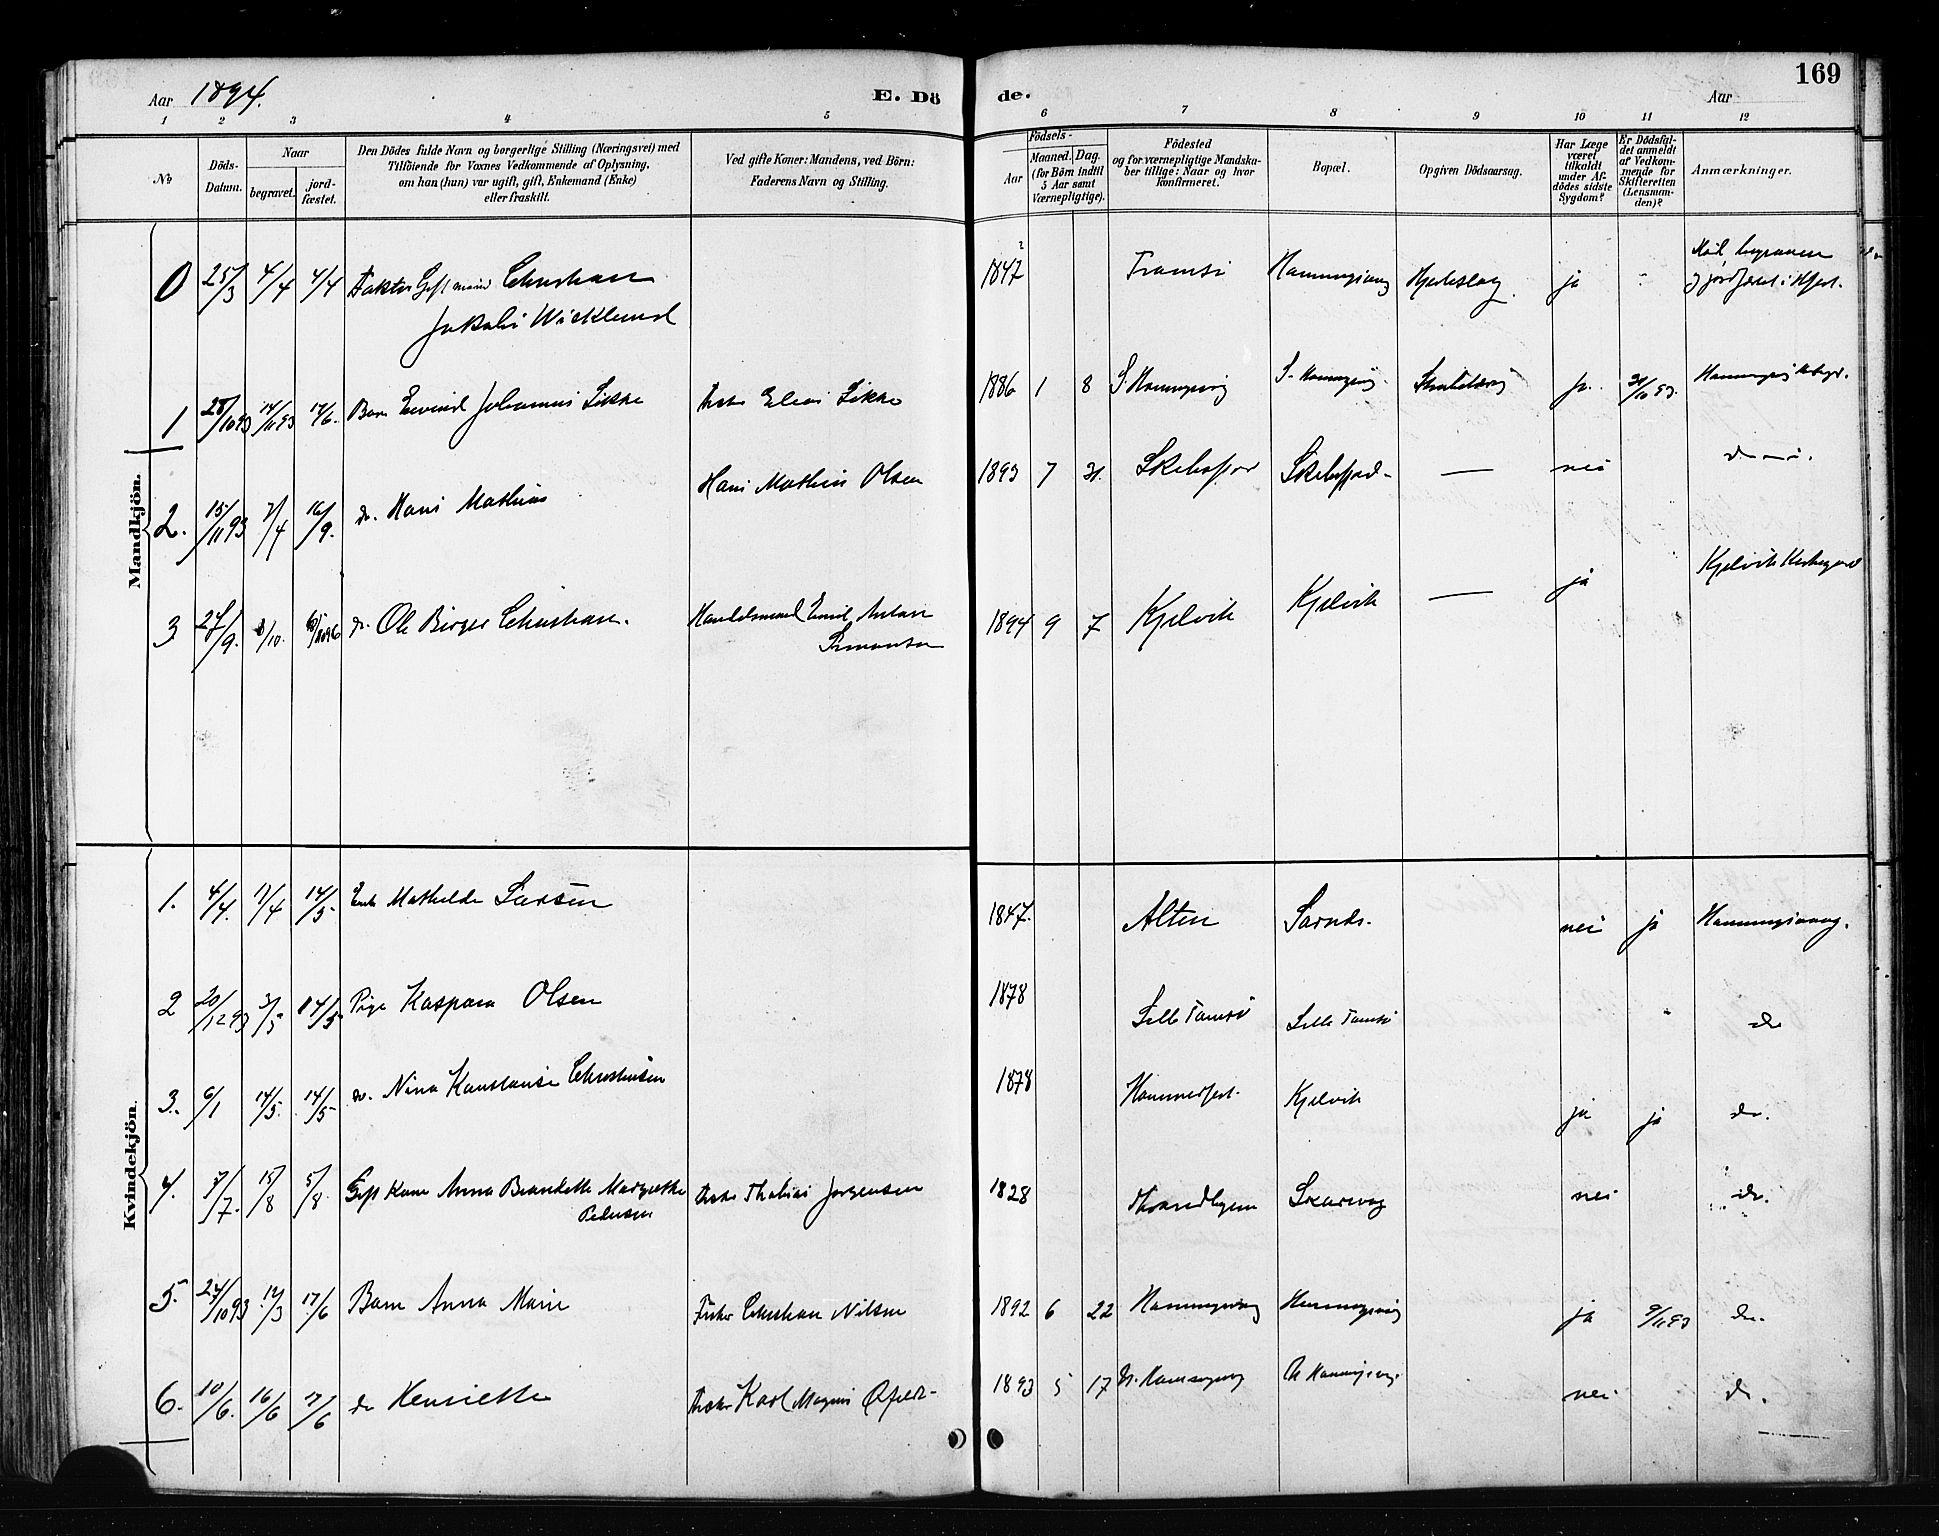 Aar 1894.
E. Dö
de.
Aar
169
1 2 3 4 5 6 7 8 9 10 11 12
No
Döds-Datum.
Naar
begravet.
jord-fæstet.
Den Dödes fulde Navn og borgerlige Stilling (Næringsvei) med
Tilföiende for Voxnes Vedkommende af Oplysning,
om han (hun) var ugift, gift, Enkemand (Enke)
eller fraskilt.
Ved gifte Koner: Mandens, ved Börn:
Faderens Navn og Stilling.
Födsels-
Aar
Maaned. Dag.
(for Börn indtil
5 Aar samt
Værnepligtige).
Födested
og for værnepligtige Mandska-
ber tillige: Naar og hvor
konfirmeret.
Bopæl.
Opgiven Dödsaarsag.
Har Læge
været
tilkaldt
under Af-
dödes sidste
Sygdom?
Er Dödsfal-
det anmeldt
af Vedkom-
mende for
Skifteretten
(Lensman-
den)?
Anmærkninger.
Mandkjön.
0 25/3 4/4 4/4 Doktor Gift mand Christian 1847 Tromsö Honningsvaag Hjerteslag. ja
Jakobi Wicklund
jordfæstet i Hfest.
1 28/10 93 14/11 93 17/6. Barn Eivind Johannes Likke Fisker Elias Likke 1886 1 8 S. Honningsvåg S. Honningsvåg ja.
2. 15/11 93 7/4 16/9. do. Hans Mathias Hans Mathias Olsen 1893 7 31. Skibsfjord Skibsfjord — nei do
3 24/9. 8/10. do. Ole Birger Christian. Handelsmand Emil Anton 1894 9 7 Kjelvik Kjelvik — ja Kjelvik Kirkegaard
Simonsen
Kvindekjön.
1. 4/4. 11/4 14/5. Enke Mathilde Larsen 1847. Alten Sarnes. nei ja Honningsvaag.
2 20/12 93 3/5 14/5 Pige Kaspara Olsen 1878 Lille Tamsö Lille Tamsö do
3. 6/1 14/5. 14/5 do. Nina Konstanse Christensen 1878 Hammerfest. Kjelvik ja ja do.
4. 3/7. 15/8 5/8. Gift Kone Anna Margrethe Fisker Thobias Jörgensen 1828 Throndhjem Skarsvåg nei do.
Pedersen
5. 24/10 93 12/3 17/6 Barn Anna Marie Fisker Christian Nilsen 1892 6 22 Honningsvåg Honningsvåg ja 9/11 93 do.
6. 10/6. 16/6 17/6 do Henriette Fisker Karl Magnus 1893 5 17 N. Honningsvåg N. Honningsvåg. nei do.